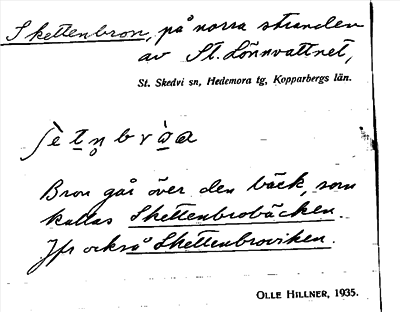 Skettenbron, på norra stranden
av St. Lönnvattnet,
St. Skedvi sn, Hedemora tg, Kopparbergs län.
Bron går över den bäck, som
kallas Skettenbrobäcken.
Jfr också Skettenbroviken.
OLLE HILLNER, 1935.